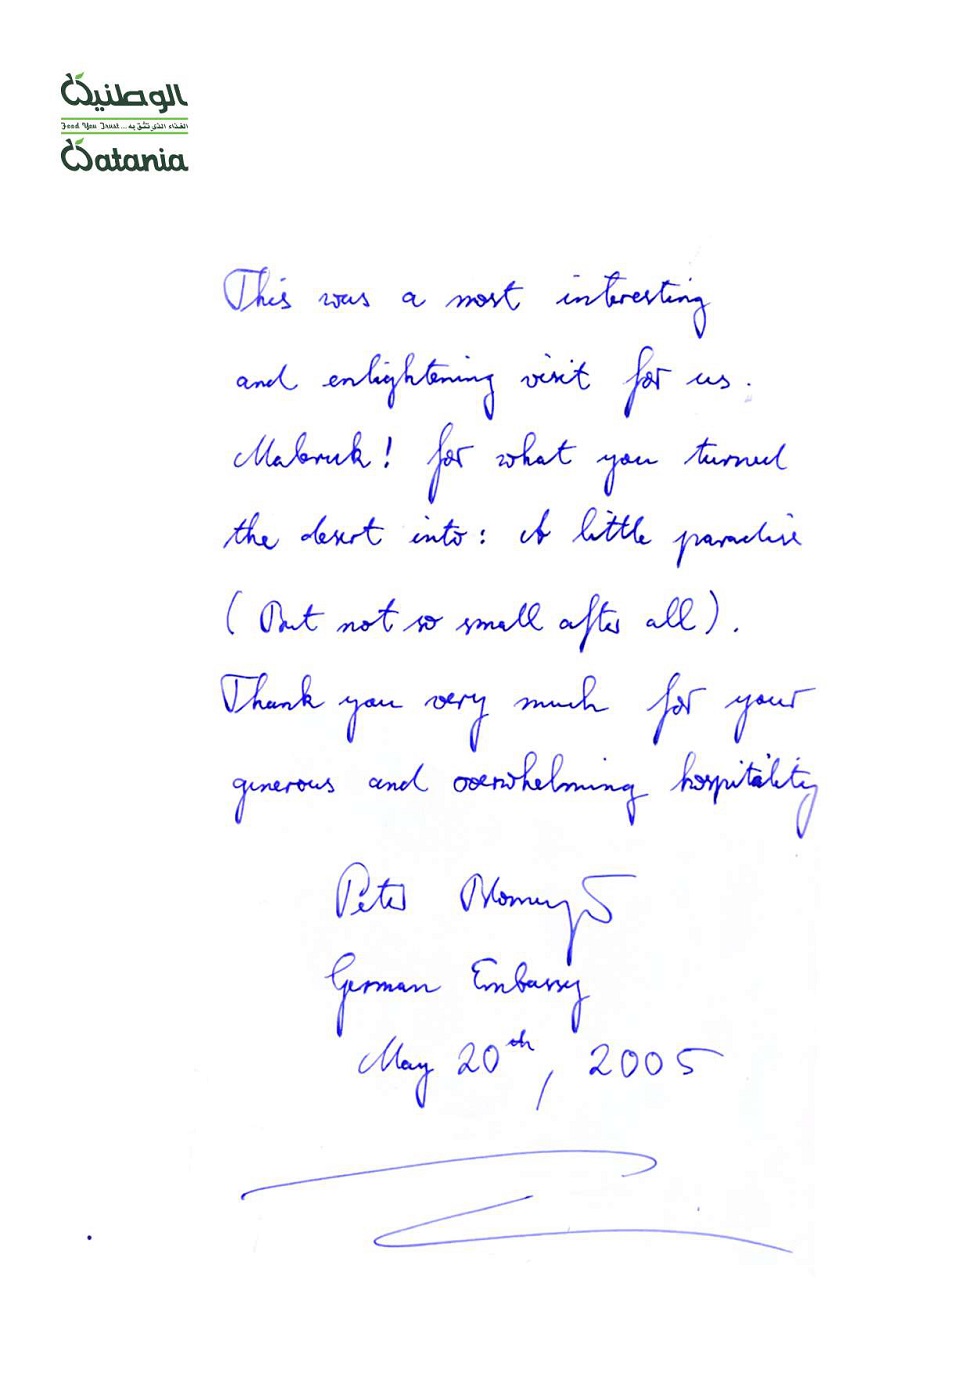 الوطنية
Food You Trust... الغذاء الذي تثق به
Watania
This was a most interesting
and enlightening visit for us.
Mabruk! for what you turned
the desert into: A little paradise
(But not so small after all).
Thank you very much for your
generous and overwhelming hospitality
Peter
German Embassy
May 20th, 2005